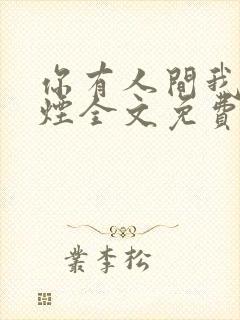 你有人間我
煙全文免費
業李松